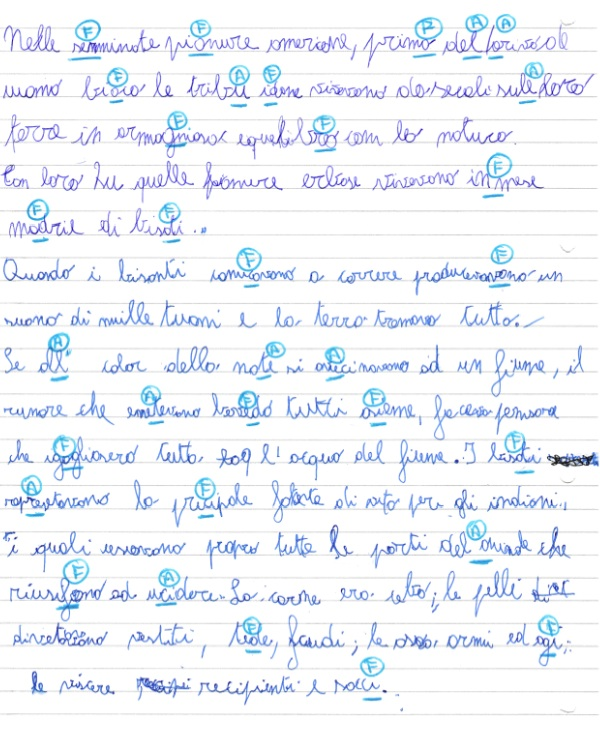 F F R A A
Nelle semminate pianure americane, prima del l'arivo del
F A F A
uomo bianco le tribù idene vivevano da secoli sulle loro
F F
terra in armagniosa equelibro con la natura.
F
Con loro su quelle pianure erbose vivevano in mese
F F
madrie di bisoti...
F
Quando i bisonti cominciavano a correre producevavano un
suono di mille tuoni e la terra tramava tutto.
A A A
Se all' calar della note si avicinavano ad un fiume, il
A F F
rumore che emetevano bevedo tutti asieme, faceva pensare
F F
che igogliasero tutta l'acqua del fiume. I bisoti
A F
rapresetavano la pricipale fonte di vita per gli indiani,
A
i quali usavano propro tutte le parti del animale che
F A
riusifono ad ucidere. La carne era cibo; le pelli
F F
diventavano vestiti, tede, scudi; le ossa armi ed agi;
F
le viscere recipienti e sacci.